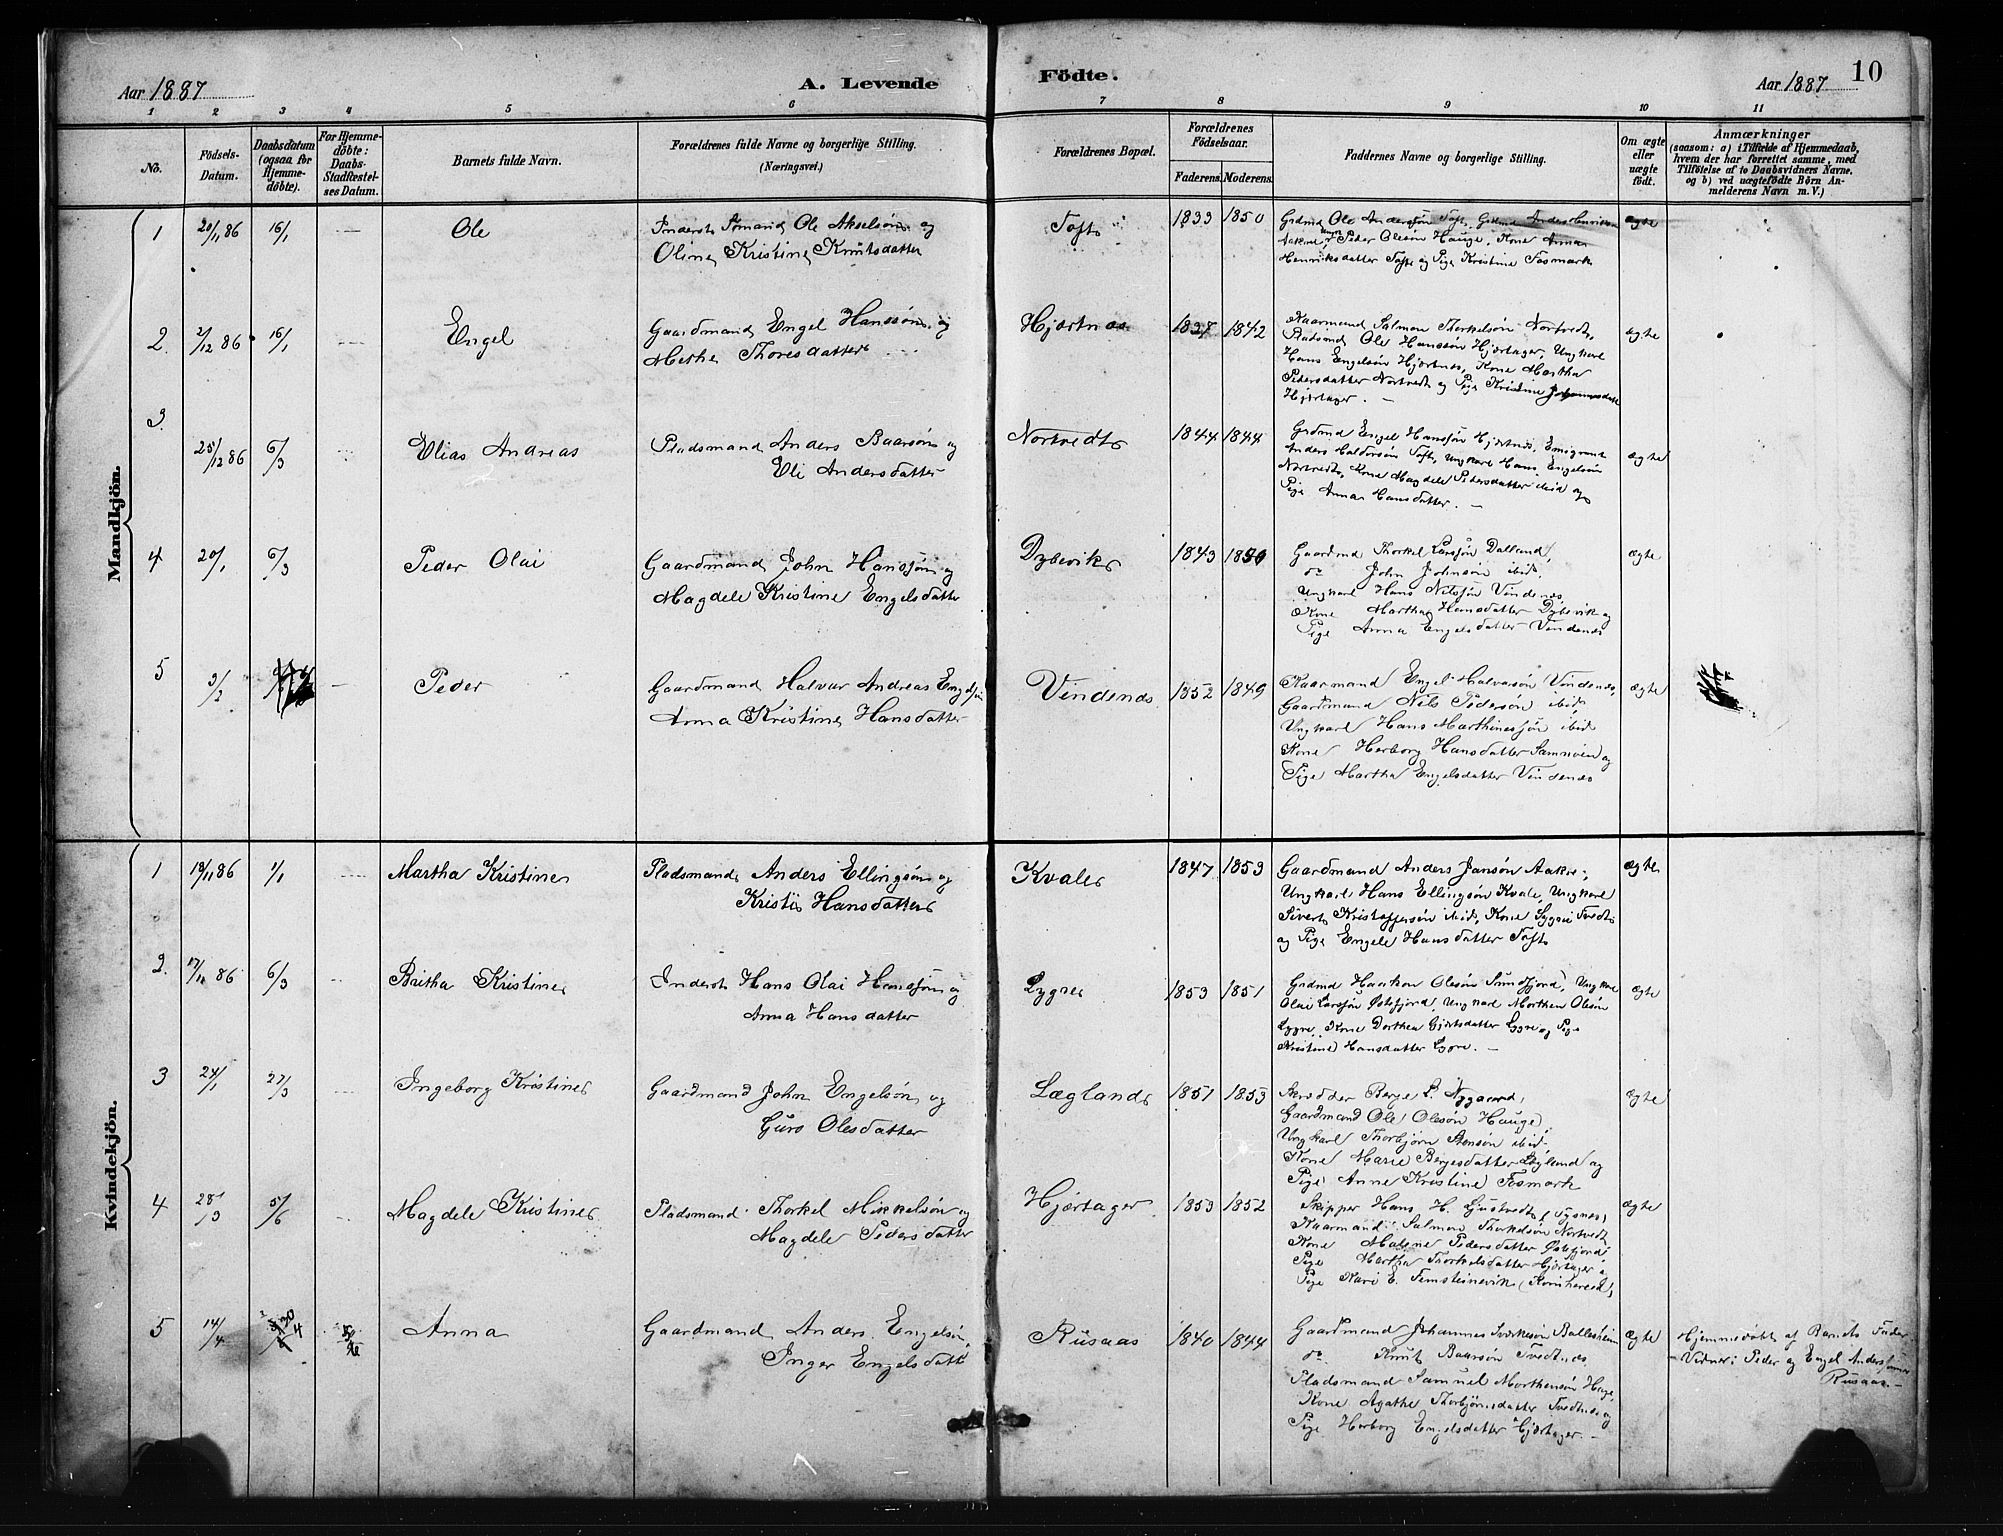 Aar 1887 A. Levende Födte. Aar 1887 10
1 2 3 4 5 6 7 8 9 10 11
No.
Födsels-Datum.
Daabsdatum (ogsaa for Hjemmedöbte).
For Hjemmedöbte: Daabs-Stadfæstelses Datum.
Barnets fulde Navn.
Forældrenes fulde Navne og borgerlige Stilling. (Næringsvei.)
Forældrenes Bopæl.
Forældrenes Födselsaar.
Faderens. Moderens.
Faddernes Navne og borgerlige Stilling.
Om ægte eller uægte födt.
Anmærkninger
(saasom: a) i Tilfælde af Hjemmedaab,
hvem der har forrettet samme, med
Tilföielse af to Daabsvidners Navne,
og b) ved uægtefödte Börn Anmelderens Navn m. V.)
Mandkjön.
1 20/11 86 16/1 — Ole
Inderst Ole Akselsøn og
Oline Kristine Knutsdatter
Toft 1833 1850
Grdmd Ole Anderssøn Toft, Grdmd Anders Henriksen
Aakre, Peder Olesøn Hauge, Kone Anna
Henriksdatter Toft og Pige Kristine Fosmark
ægte
2. 2/12 86 16/1 Engel
Gaardmand Engel Hanssøn og
Methe Thoresdatter
Hjortnæs 1837 1842
Kaarmand Salmon Thorkelsøn Nortvedt,
Pladsmd Ole Hanssøn Hjortager, Ungkarl
Hans Engelsøn Hjortnes, Kone Martha
Pedersdatter Nortvedt og Pige Kristine Johannesdatt
Hjortager. —
ægte
3. 25/12 86 6/3 Elias Andreas
Pladsmand Anders Baarsøn og
Eli Andersdatter
Nortvedt 1844 1844
Grdmd Engel Hanssøn Hjortnes, Emigrant
Anders Haldorsøn Toft, Ungkarl Hans Engelsøn
Nortvedt, Kone Magdele Pedersdatter ibid og
Pige Anna Hansdatter. —
ægte
4 20/1 6/3 Peder Olai
Gaardmand John Hanssøn og
Magdele Kristine Engelsdatter
Dybevik 1843 1850
Gaardmd Thorkel Larssøn Dalland,
do John Johnsøn ibid,
Ungkarl Hans Nilssøn Vindenes
Kone Martha Hansdatter Dybevik og
Pige Anna Engelsdatter Vindenes
ægte
5 3/2 — Peder
Gaardmand Halvar Andreas Engelsøn
Anna Kristine Hansdatter
Vindenes 1852 1849
Kaarmand Engel Halvarsøn Vindenes,
Gaardmand Nils Pedersøn ibid,
Ungkarl Hans Marthinessøn ibid
Kone Herborg Hansdatter Samnøen og
Pige Martha Engelsdatter Vindenes
ægte
Kvindekjön.
1 18/11 86 1/1 Martha Kristine
Pladsmand Anders Ellingsøn og
Kristi Hansdatter
Kvale 1847 1853
Gaardmand Anders Jansøn Aakre,
Ungkarl Hans Ellingsøn Kvale, Ungkarl
Sivert Kristoffersøn ibid, Kone Sygni Tvedt
og Pige Engele Hansdatter Toft
ægte
2. 17/11 86 6/3 Britha Kristine
Inderst Hans Olai Hanssøn og
Anna Hansdatter
Lygre 1853 1851
Grdmd Haakon Olesøn Sundfjord, Ungkarl
Olai Larssøn Østefjord, Ungkarl Morthen Olesøn
Lygre, Kone Dorthea Gjertsdatter Lygre og Pige
Kristine Hansdatter Lygre. —
ægte
3 24/1 27/3 Ingeborg Kristine
Gaardmand John Engelsøn og
Guro Olesdatter
Lægland 1851 1853
Skrædder Berge L. Nygaard,
Gaardmand Ole Olesøn Hauge,
Ungkarl Thorbjørn Stenson ibid.
Kone Marie Bergesdatter Lægland og
Pige Anne Kristine Fosmark
ægte
4 28/3 5/6 Magdele Kristine
Pladsmand Thorkel Mikkelsøn og
Magdele Pedersdatter
Hjørtager 1853 1852
Skipper Hans H. Gustvedt (Tysnes)
Kaarmand Salmon Thorkelsøn Nortvedt
Kone Malene Pedersdatter Østefjord
Pige Martha Thorkelsdatter Hjørtager
Pige Kari E. Femsteinevik (Kvinherred)
ægte
5 14/4 30/4 5/6 Anna
Gaardmand Anders Engelsøn
Inger Engelsdatt
Rusaas 1840 1844
Gaardmand Johannes Sverkesøn Ballesheim
do Knut Baarsøn Tvedtnes
Pladsmand Samuel Morthensøn Hage
Kone Agathe Thorbjørnsdatter Tvedtnes og
Pige Herborg Engelsdatter Hjørtager. —
ægte
Hjemmedøbt af Barnets Fader
— Vidner: Peder og Engel Anderssønner
Rusaas. —